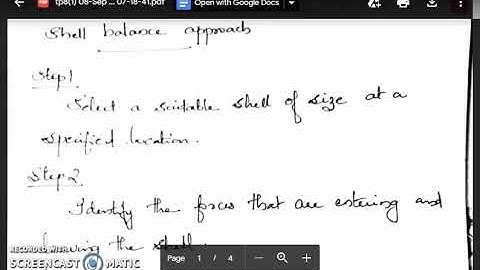 tp8(1) 08-Sep ... 07-18-41.pdf
Open with Google Docs
Shell balance approach
Step1
Select a suitable shell of size at a
specified location.
Step 2
Identify the forces that are entering and
leaving the shell.
RECORDED WITH
SCREENCAST MATIC
Page 1 / 4